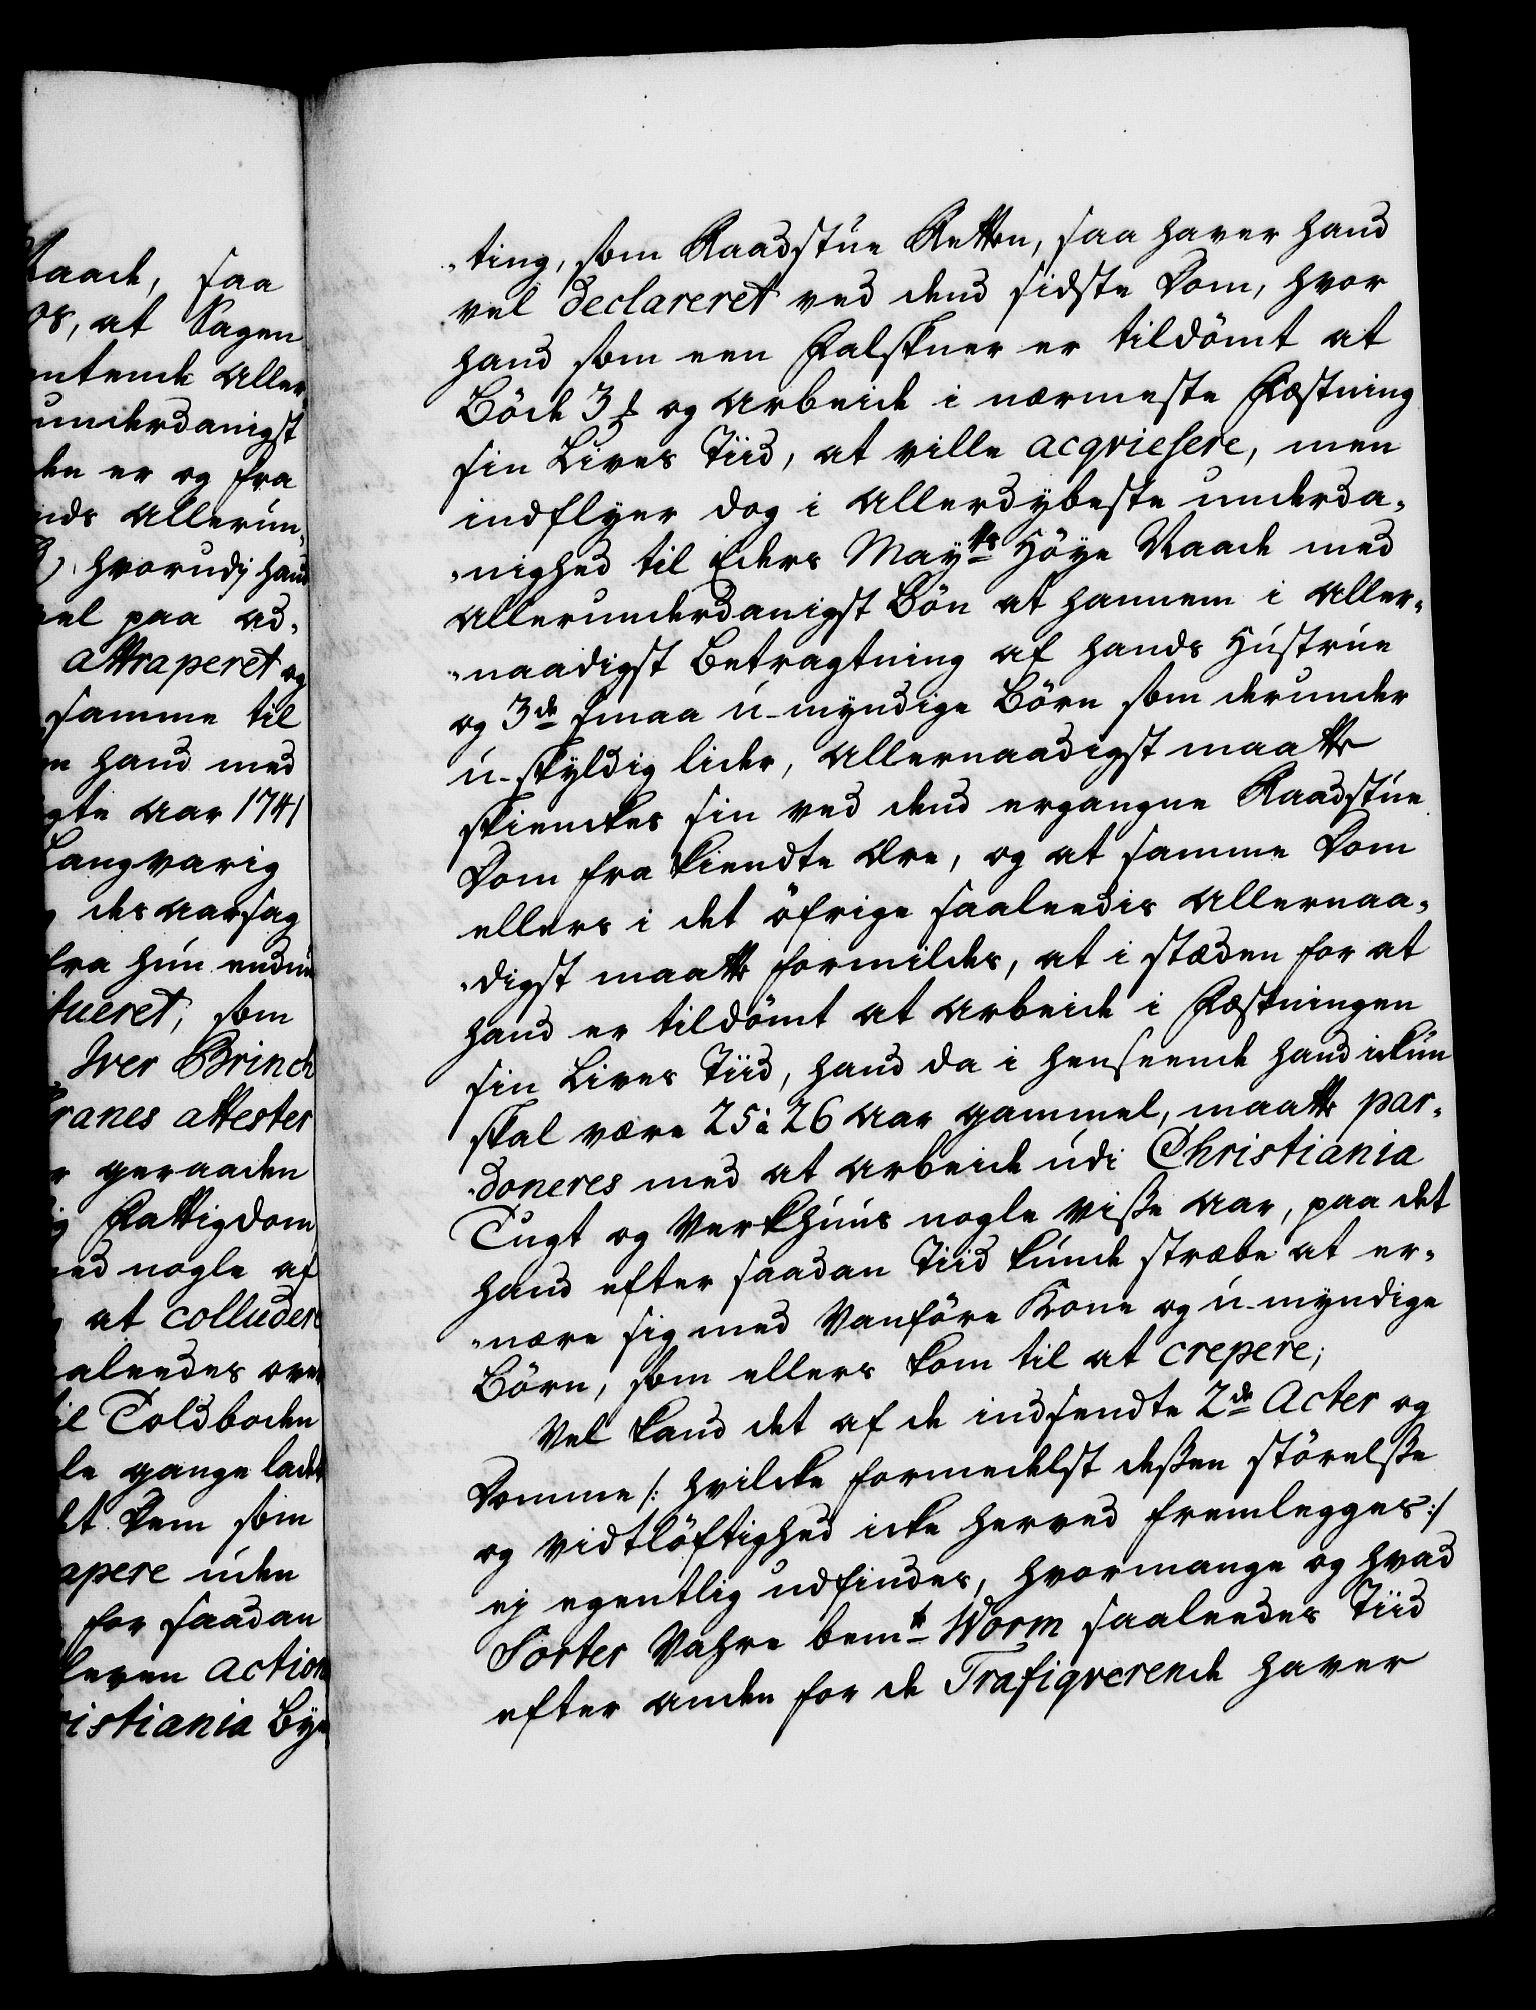 Raade, saa
os, at Sagen
ntende Aller
underdanigst
den er og fra
nds Allerun-
hvorudj hand
vel paa ad-
attraperet og
samme til
n hand med
gte Aar 1741
Langvarig
des aarsag
fra hun endnu
tueret, som
Iver Brinch
ranes attester
r geraaden
g Fattigdom
ed nogle af
at colludere
aleedes over
il Toldboden
le gange ladet
et Dem som
apere uden
for saadan
leven action
ristiania Bye
"ting, som Raadstue Retten, saa haver hand
vel declareret ved dend sidste Dom, hvor
hand som een Falskner er tildömt at
Böde 3 ₰ og Arbeide i nærmeste Fæstning
sin Lives Tiid, at ville acqviesere, men
indflyer dog i Allerdybeste underda-
"nighed til Eders Mayts Höye Naade med
Allerunderdanigst Bön at hannem i Aller-
"naadigst Betragtning af hands Hustrue
og 3de smaa u-myndige Börn som derunder
u-skyldig lider, Allernaadigst maatte
skienckes sin ved dend ergangne Raadstue
Dom fra kiendte Ære, og at samme Dom
ellers i det öfrige saaleedis Allernaa-
"digst maatte formildes, at i stæden for at
hand er tildömt at Arbeide i Fæstningen
sin Lives Tiid, hand da i henseende hand ickun
skal være 25 à 26 Aar gammel, maatte par-
"doneres med at Arbeide udi Christiania
Tugt og Verkhuus nogle visse Aar, paa det
hand efter saadan Tiid kunde stræbe at er-
"nære sig med Vanföre Kone og u-myndige
Börn, som ellers kom til at crepere;
Vel kand det af de indsendte 2de Acter og
Domme /: hvilcke formedelst dessen störelsse
og vidtlöftighed icke herved fremlegges :/
ej egentlig udfindes, hvormange og hvad
Sorter Vahre bemte Worm saaleedes Tiid
efter anden for de Trafiqverende haver